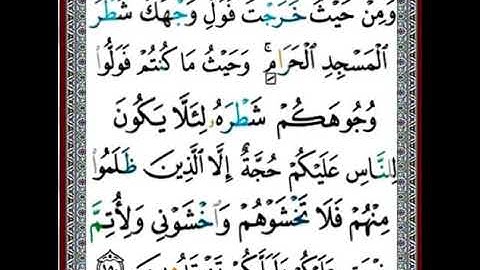 وَمِنْ حَيْثُ خَرَجْتَ فَوَلِّ وَجْهَكَ شَطْرَ
ٱلْمَسْجِدِ ٱلْحَرَامِۚ وَحَيْثُ مَا كُنتُمْ فَوَلُّوا۟
وُجُوهَكُمْ شَطْرَهُۥ لِئَلَّا يَكُونَ
لِلنَّاسِ عَلَيْكُمْ حُجَّةٌ إِلَّا ٱلَّذِينَ ظَلَمُوا۟
مِنْهُمْ فَلَا تَخْشَوْهُمْ وَٱخْشَوْنِى وَلِأُتِمَّ